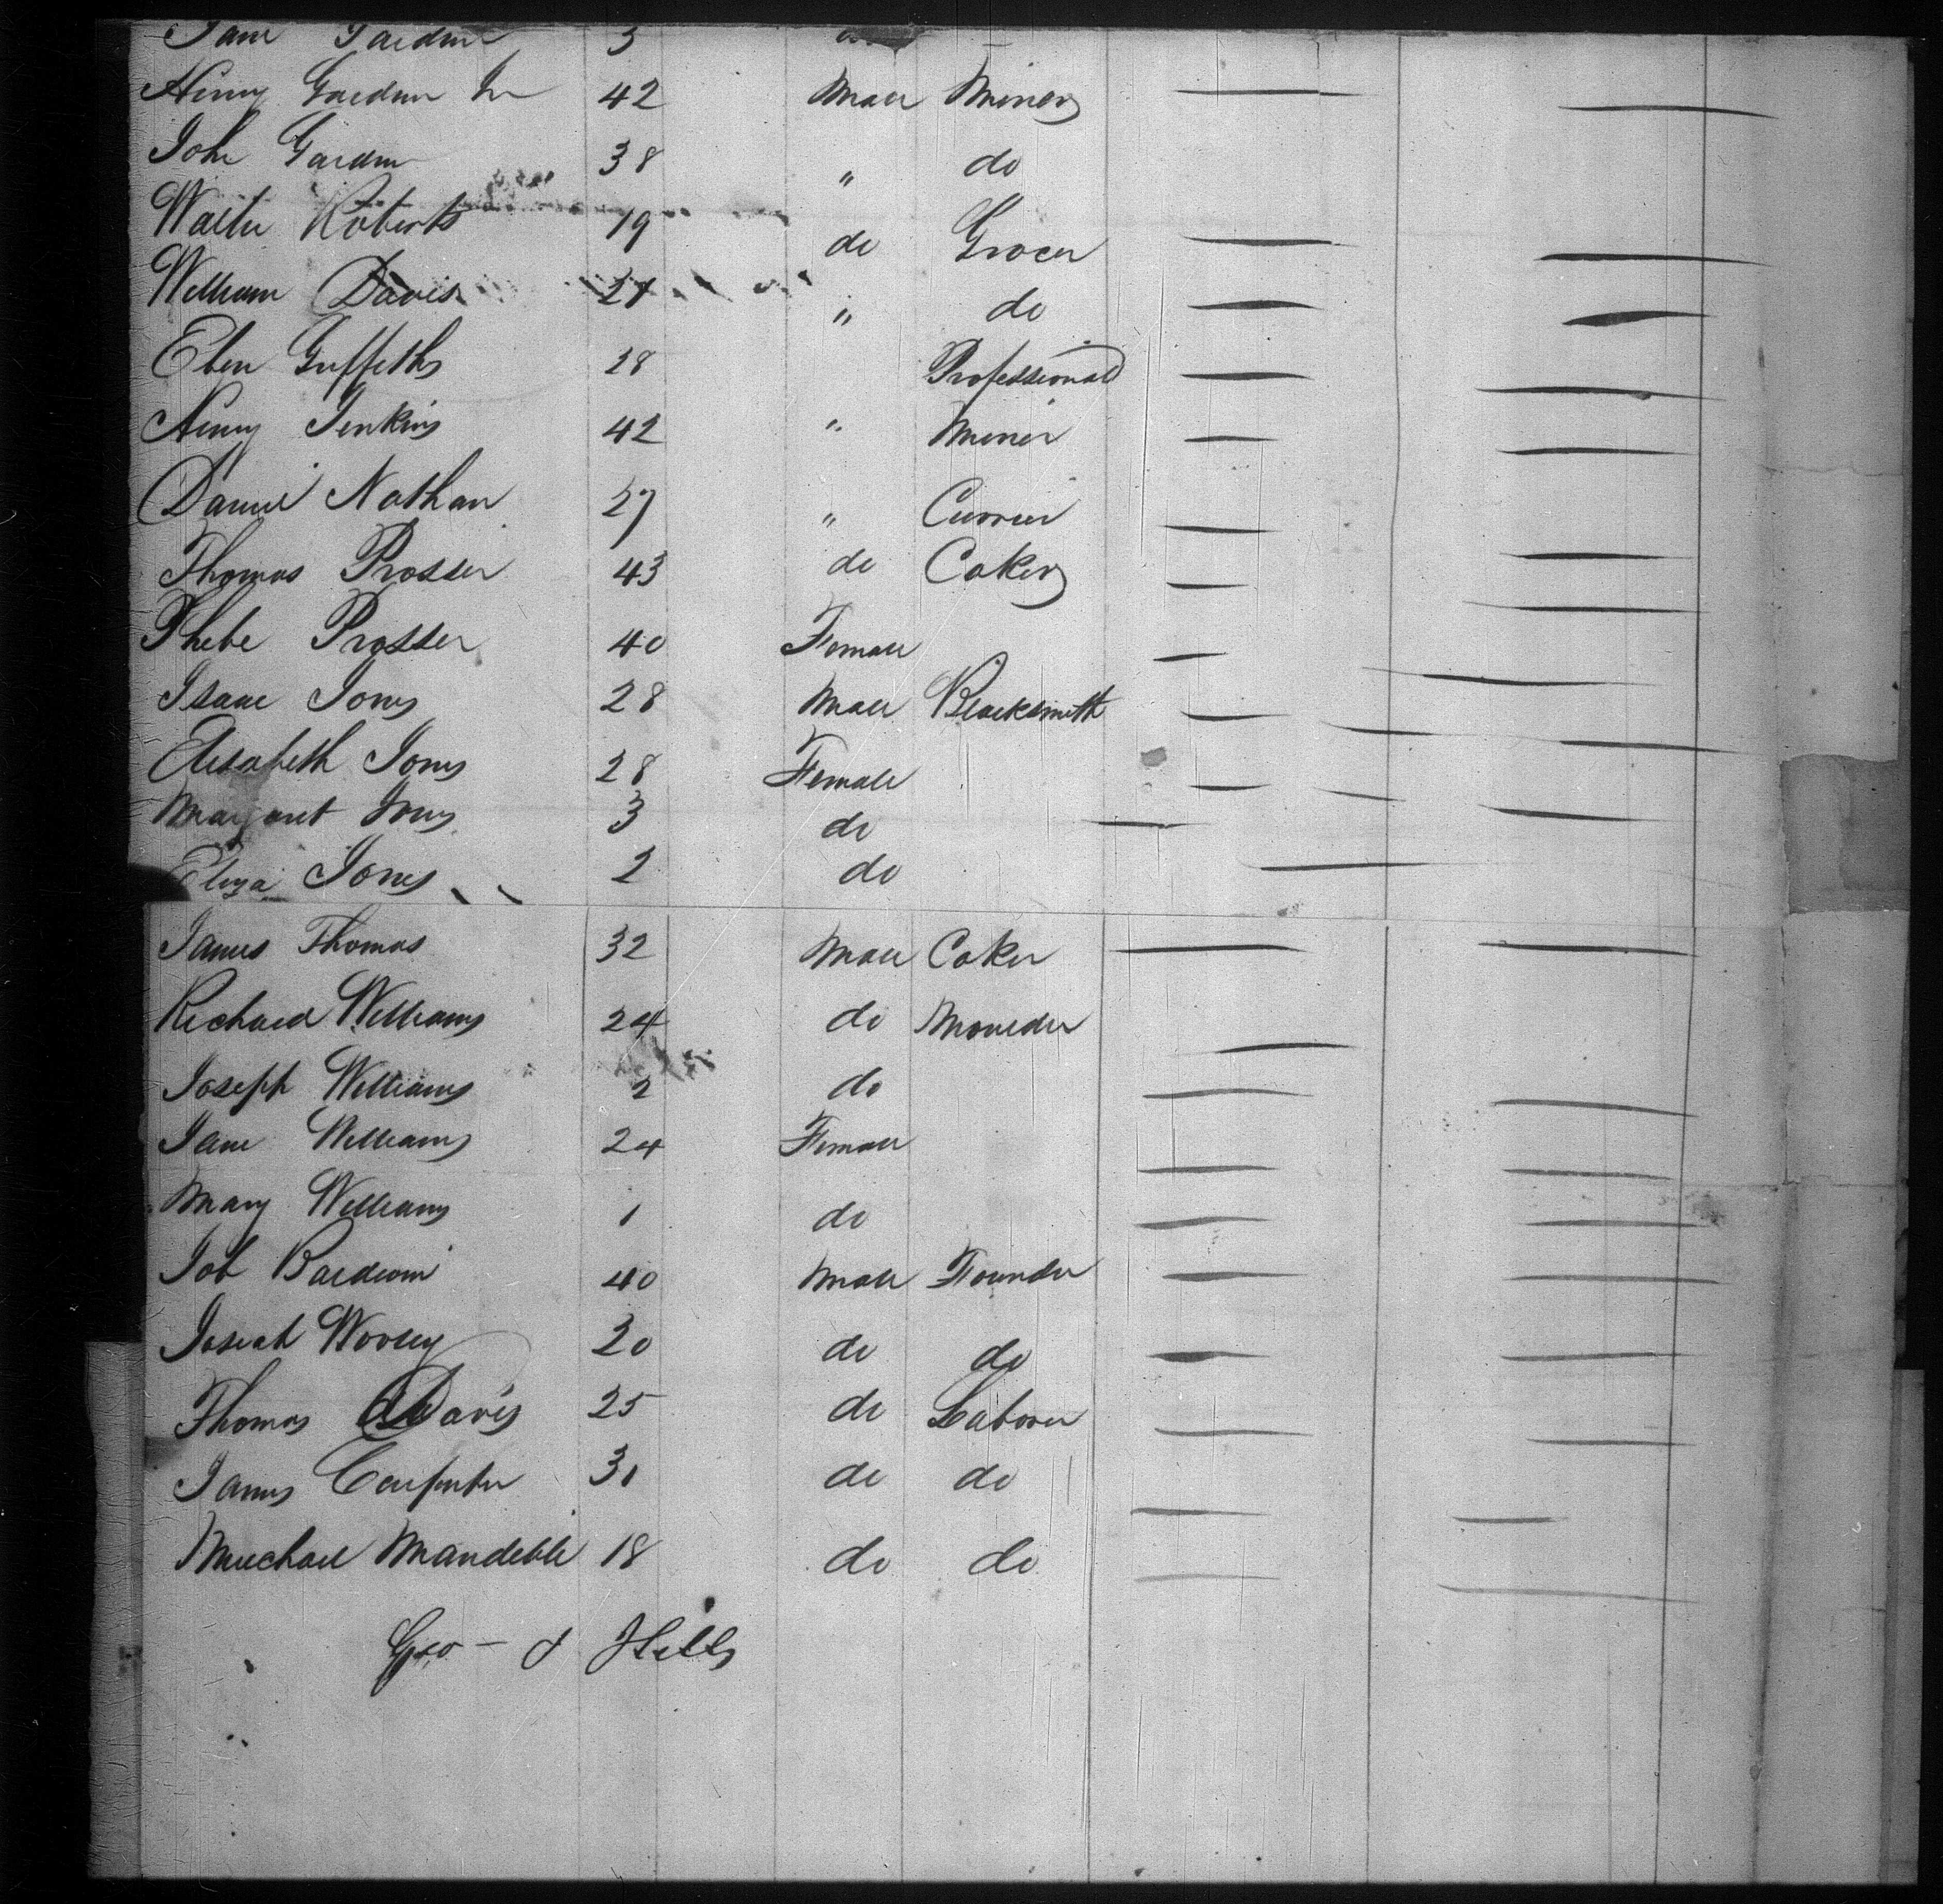 Jane Gardner 3 do
Henry Gardner Jr 42 Male Miner
John Gardner 38 " do
Walter Roberts 19 do Grocer
William Davis 21 " do
Eben Griffiths 28 Professional
Henry Jenkins 42 " Miner
Daniel Nathan 27 " Currier
Thomas Prosser 43 do Coker
Phebe Prosser 40 Female
Isaac Jones 28 Male Blacksmith
Elisabeth Jones 28 Female
Margaret Jones 3 do
Eliza Jones 2 do
James Thomas 32 Male Coker
Richard Williams 24 do Moulder
Joseph Williams 2 do
Jane Williams 24 Female
Mary Williams 1 do
Job Baldwin 40 Male Founder
Josiah Worsey 20 do do
Thomas Davis 25 do Laborer
James Carpenter 31 do do
Muchael Mandeble 18 do do
Geo - J Hills